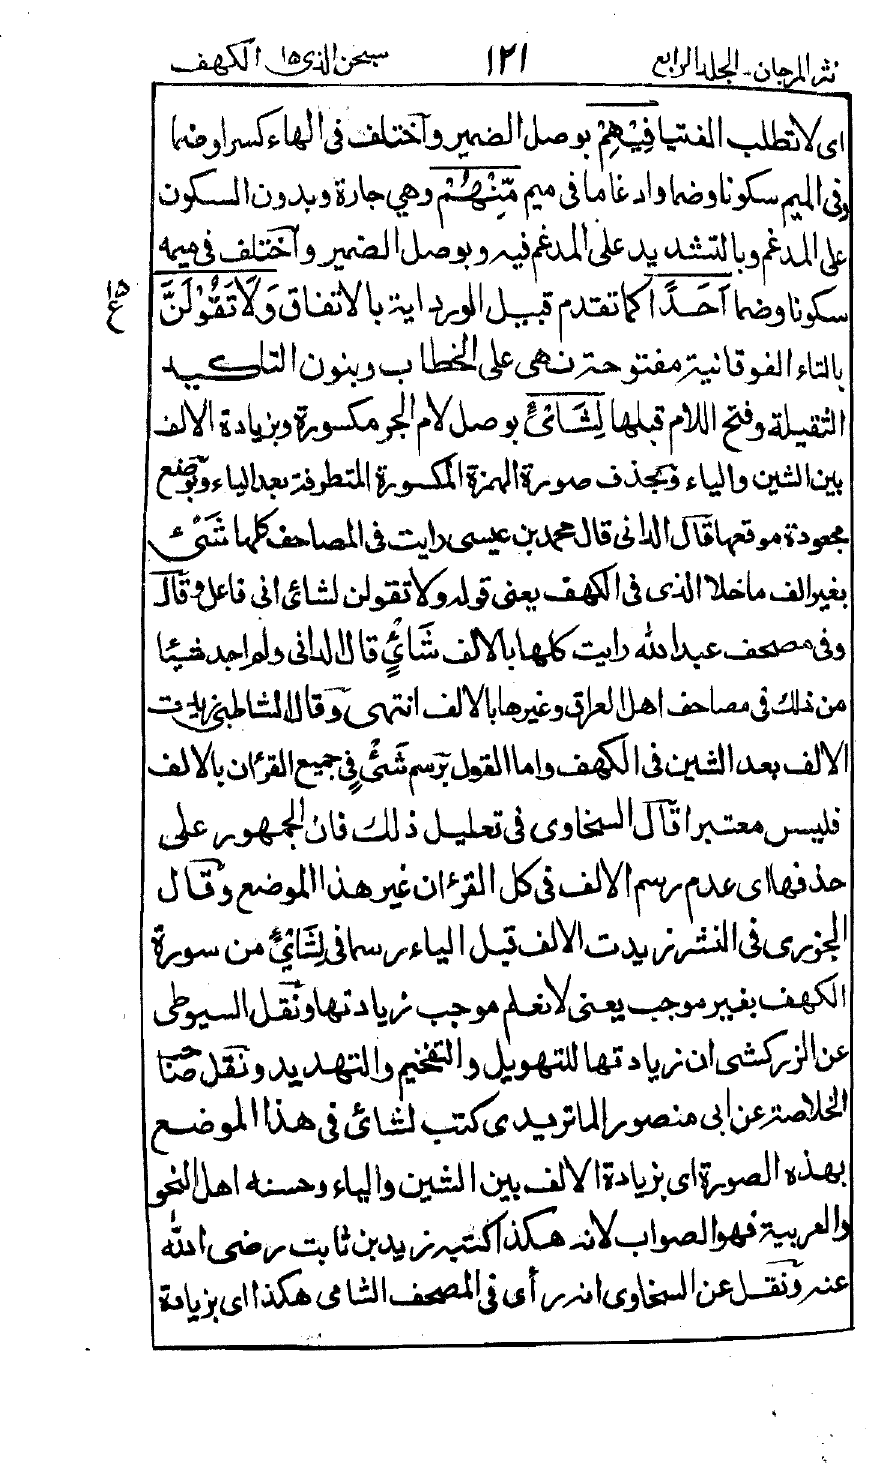 نثر المرجان - الجلد الرابع ١٢١ سبحن الذى ١٥ الكهف
اى لا تطلب الفتيا فِيْهِمْ بوصل الضمير واختلف فى الهاء كسرا وضما
وفى الميم سكونا وضما وادغاما فى ميم مِّنْهُمْ وهي جارة وبدون السكون
على المدغم وبالتشديد على المدغم فيه وبوصل الضمير واختلف فى ميمه
سكونا وضما اَحَدًا كما تقدم قبيل الورد اية بالاتفاق وَلَا تَقُوْلَنَّ
١٥
ع
بالتاء الفوقانية مفتوحة نهى على الخطاب وبنون التاكيد
الثقيلة وفتح اللام قبلها لِشَائْءٍ بوصل لام الجر مكسورة وبزيادة الالف
بين الشين والياء وبحذف صورة الهمزة المكسورة المتطرفة بعد الياء وبوضع
مجعودة موقعها قال الدانى قال محمد بن عيسى رايت فى المصاحف كلها شَىْء
بغير الف ما خلا الذى فى الكهف يعنى قوله ولا تقولن لشائ انى فاعل وقال
وفى مصحف عبد الله رايت كلها بالالف شَائْءٍ قال الدانى ولم اجد شيئا
من ذلك فى مصاحف اهل العراق وغيرها بالالف انتهى وقال الشاطبى زيدت
الالف بعد الشين فى الكهف واما القول برسم شَىْءٍ فى جميع القرءان بالالف
فليس معتبرا قال السخاوى فى تعليل ذلك فان الجمهور على
حذفها اى عدم رسم الالف فى كل القرءان غير هذا الموضع وقال
الجزرى فى النشر زيدت الالف قبل الياء رسما فى لِشَائْءٍ من سورة
الكهف بغير موجب يعنى لا نعلم موجب زيادتها ونقل السيوطى
عن الزركشى ان زيادتها للتهويل والتفخيم والتهديد ونقل صاحب
الخلاصة عن ابى منصور الماتريدى كتب لشائ فى هذا الموضع
بهذه الصورة اى بزيادة الالف بين الشين والياء وحسنه اهل النحو
والعربية فهو الصواب لانه هكذا كتبه زيد بن ثابت رضى الله
عنه ونقل عن السخاوى انه رأى فى المصحف الشامى هكذا اى بزيادة